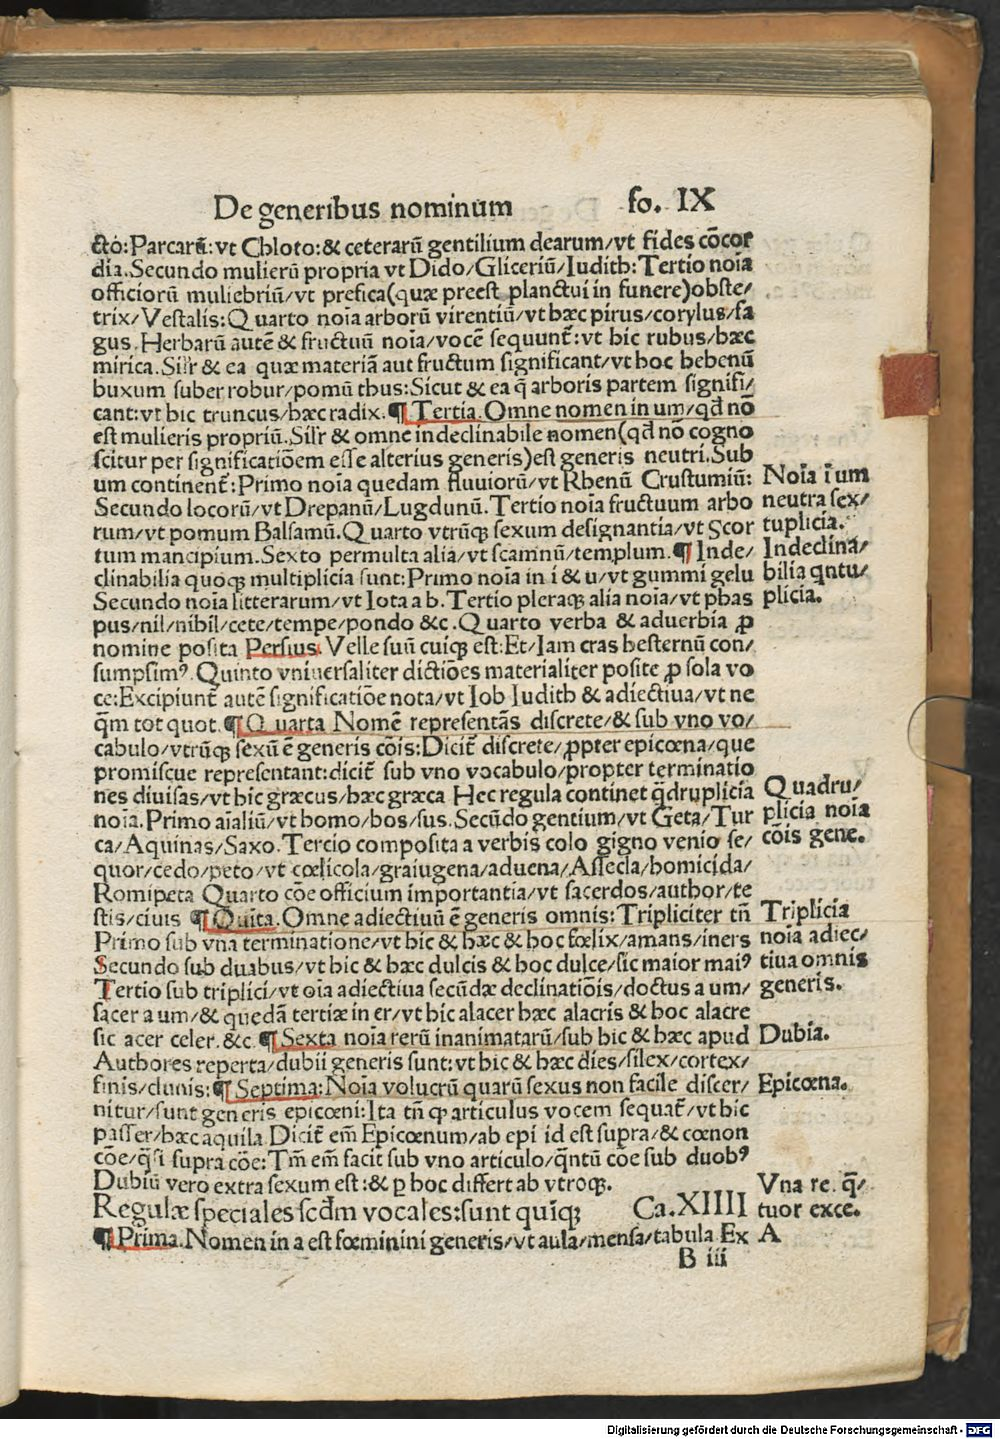 De generibus nominum fo. IX
cto: Parcarū: vt Chloto: & ceterarū gentilium dearum/vt fides cōcor
dia. Secundo mulierū propria vt Dido/Gliceriū/Iudith: Tertio noīa
officiorū muliebriū/vt prefica(quæ preest planctui in funere)obste/
trix/Vestalis: Quarto noīa arborū virentiū/vt hæc pirus/corylus/fa
gus. Herbarū autē & fructuū noīa/vocē sequunt᷑: vt hic rubus/hæc
mirica. Silr & ea quæ materiā aut fructum significant/vt hoc hebenū
buxum suber robur/pomū thus: Sicut & ea q̄ arboris partem signifi/
cant: vt hic truncus/hæc radix. ¶ Tertia. Omne nomen in um/qđ nō
est mulieris propriū. Silr & omne indeclinabile nomen(qđ nō cogno
scitur per significatiōem esse alterius generis)est generis neutri. Sub
um continent᷑: Primo noīa quedam fluuiorū/vt Rhenū Crustumiū:
Secundo locorū/vt Drepanū/Lugdunū. Tertio noīa fructuum arbo
rum/vt pomum Balsamū. Quarto vtrūqꝫ sexum designantia/vt Scor
tum mancipium. Sexto permulta alia/vt scamnū/templum. ¶ Inde/
clinabilia quoqꝫ multiplicia sunt: Primo noīa in i & u/vt gummi gelu
Secundo noīa litterarum/vt Iota a b. Tertio pleraqꝫ alia noīa/vt phas
pus/nil/nihil/cete/tempe/pondo &c. Quarto verba & aduerbia ꝓ
nomine posita Persius. Velle suū cuiqꝫ est: Et/Iam cras hesternū con/
sumpsimꝰ. Quinto vniuersaliter dictiōes materialiter posite ꝓ sola vo
ce: Excipiunt᷑ autē significatiōe nota/vt Iob Iudith & adiectiua/vt ne
q̄m tot quot. ¶ Quarta Nomē representās discrete/& sub vno vo/
cabulo/vtrūqꝫ sexū ē generis cōis: Dicit᷑ discrete/ꝓpter epicœna/que
promiscue representant: dicit᷑ sub vno vocabulo/propter terminatio
nes diuisas/vt hic græcus/hæc græca Hec regula continet q̄druplicia
noīa. Primo aīaliū/vt homo/bos/sus. Secūdo gentium/vt Geta/Tur
ca/Aquinas/Saxo. Tercio composita a verbis colo gigno venio se/
quor/cedo/peto/vt cœlicola/graiugena/aduena/Assecla/homicida/
Romipeta Quarto cōe officium importantia/vt sacerdos/author/te
stis/ciuis ¶ Quīta. Omne adiectiuū ē generis omnis: Tripliciter tn̄
Primo sub vna terminatione/vt hic & hæc & hoc fœlix/amans/iners
Secundo sub duabus/vt hic & hæc dulcis & hoc dulce/sic maior maiꝰ
Tertio sub triplici/vt oīa adiectiua secūdæ declinatiōis/doctus a um/
sacer a um/& quedā tertiæ in er/vt hic alacer hæc alacris & hoc alacre
sic acer celer. &c. ¶ Sexta noīa rerū inanimatarū/sub hic & hæc apud
Authores reperta/dubii generis sunt: vt hic & hæc dies/silex/cortex/
finis/clunis: ¶ Septima: Noīa volucrū quarū sexus non facile discer/
nitur/sunt generis epicœni: Ita tn̄ ꝙ articulus vocem sequat᷑/vt hic
passer/hæc aquila. Dicit᷑ em̄ Epicœnum/ab epi id est supra/& cœnon
cōe/q̄si supra cōe: Tm̄ em̄ facit sub vno articulo/q̄ntū cōe sub duobꝰ
Dubiū vero extra sexum est: & ꝑ hoc differt ab vtroqꝫ.
Regulæ speciales scđm vocales: sunt quīqꝫ Ca. XIIII
¶ Prima. Nomen in a est fœminini generis/vt aula/mensa/tabula Ex
B iii
Noīa ī um
neutra sex/
tuplicia.
Indeclina/
bilia qntu/
plicia.
Quadru/
plicia noīa
cōis gene.
Triplicia
noīa adiec/
tiua omnis
generis.
Dubia.
Epicœna.
Vna re. q̄/
tuor exce.
A
Digitalisierung gefördert durch die Deutsche Forschungsgemeinschaft - DFG